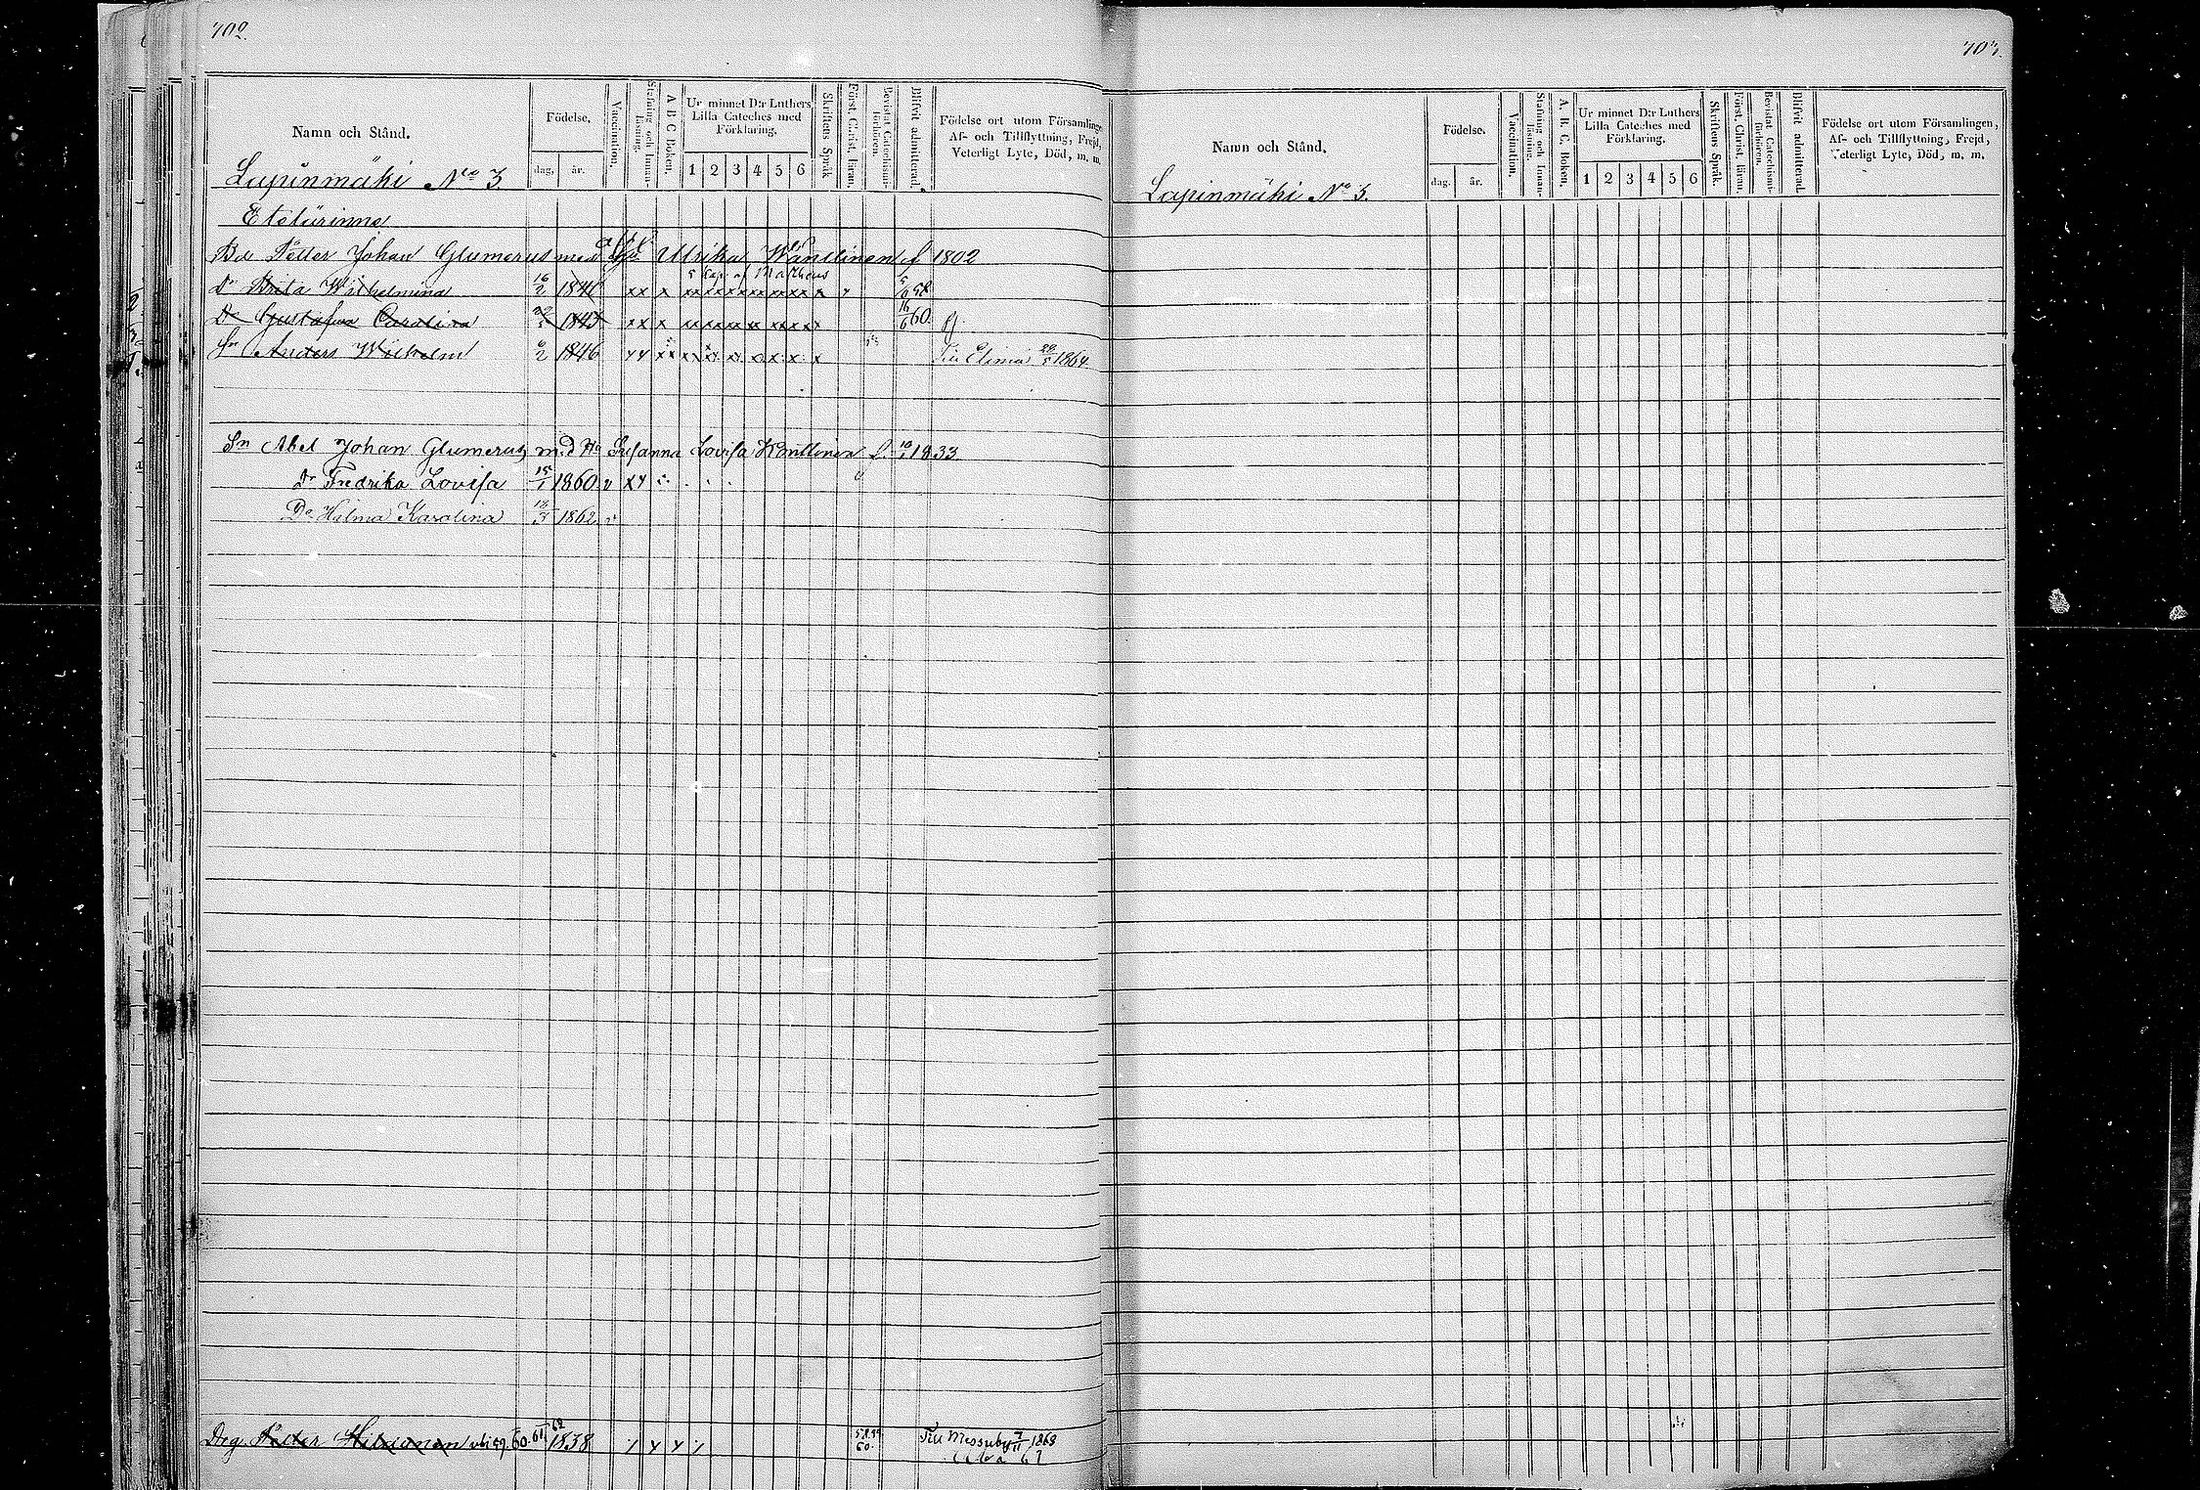 702.
Namn och Stånd.
Födelse.
dag. år.
Vaccination.
Stafning och Innanläsning.
A B C Boken.
Ur minnet D:r Luthers Lilla Cateches med Förklaring.
1 2 3 4 5 6
Skriftens Språk
Först. Christ. läran.
Bevistat Catechismiförhören.
Blifvit admitterad.
Födelse ort utom Församlingen
Af- och Tillflyttning, Frejd,
Veterligt Lyte, Död, m. m.
Lapinmäki No 3
Etolärinne
Bd Petter Johan Glumerus med Ulrika Wänttinen f 1802
5 Cap. af Matheus
Dr Brita Wilhelmina 16/2 1840 xx x
Dr Gustafva Carolina 1843 xx x 16/6 60.
Sn Anders Wilhelm 6/2 1846 Till Elimä 1864.
Sn Abel Johan Glumerus med Hu Susanna Lovisa f. 1833
Dr Fredrika Lovisa 15/1 1860 v
Dr Hilma Karolina 1862 v
Drg Petter 60. 61 62 1838 60. Till Messuby 1868
703.
Namn och Stånd.
Födelse.
dag. år.
Vaccination.
Stafning och Innanläsning.
A. B. C. Boken.
Ur minnet D:r Luthers Lilla Cateches med Förklaring.
1 2 3 4 5 6
Skriftens Språk.
Först. Christ. läran.
Bevistat Catechismiförhören.
Blifvit admitterad
Födelse ort utom Församlingen,
Af- och Tillflyttning, Frejd,
Veterligt Lyte, Död, m. m.
Lapinmäki No 3.